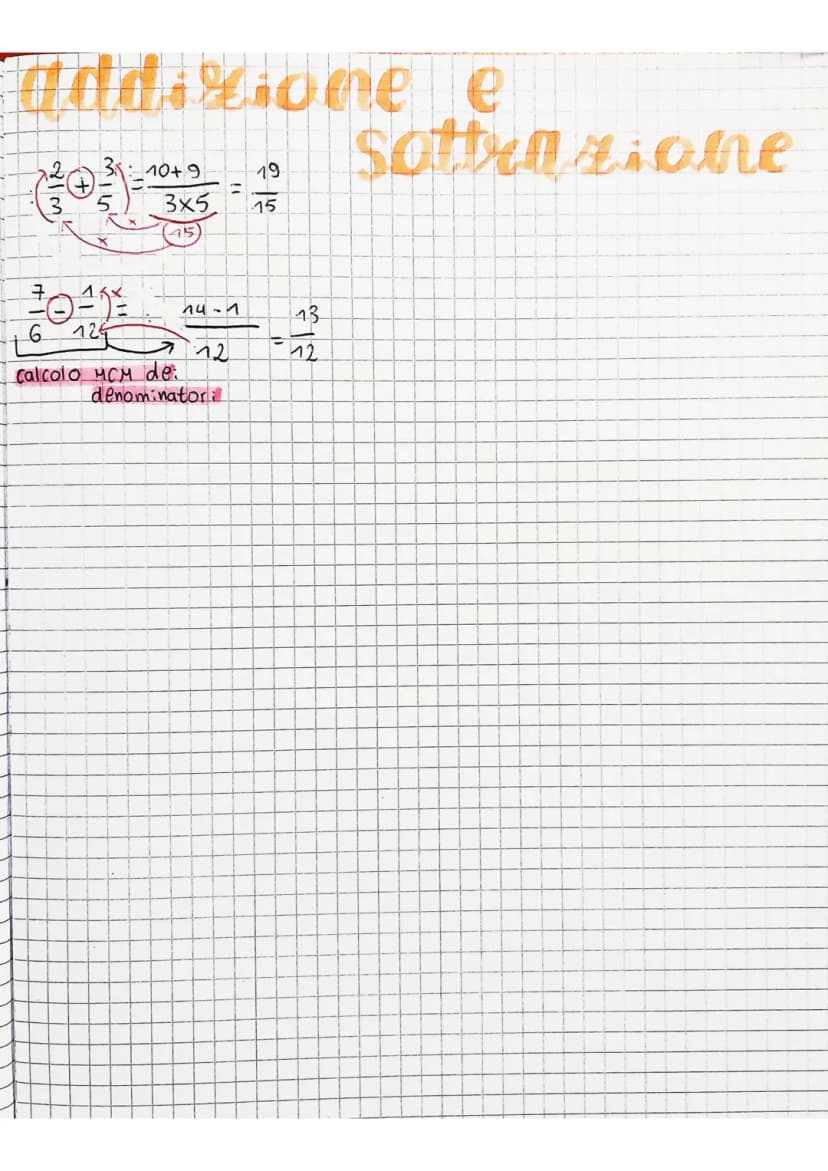 addizione e
sottrazione
2/3 + 3/5 = 10+9 / 3x5 = 19/15
x x 15
7/6 - 1/12 = 14-1 / 12 = 13/12
x
calcolo MCM dei
denominatori